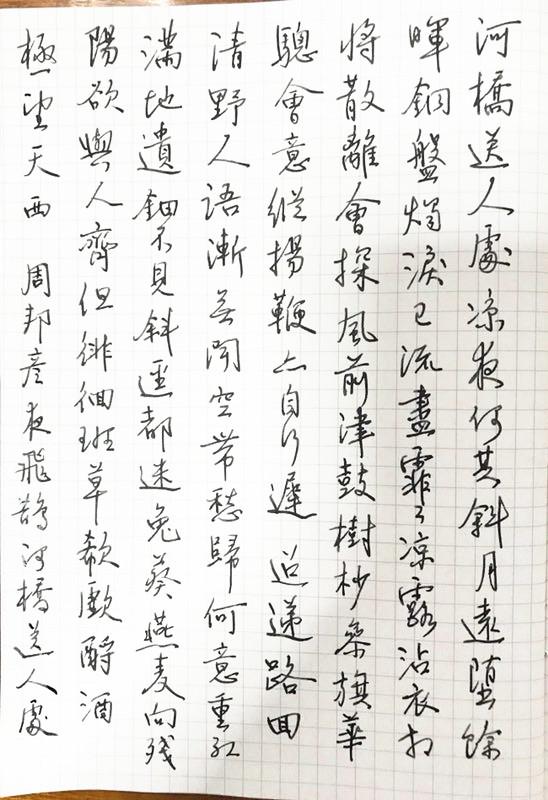 河橋送人處涼夜何其斜月遠墮餘
暉銅盤燭淚已流盡霏〻涼露沾衣相
將散離會探風前津鼓樹杪參旗華
驄會意縱揚鞭亦自行遲 迢遞路回
清野人語漸無聞空帶愁歸何意重紅
滿地遺鈿不見斜逕都迷兔葵燕麦向殘
陽欲與人齊但徘徊班草欷歔酹酒
極望天西 周邦彦夜飛鵲河橋送人處